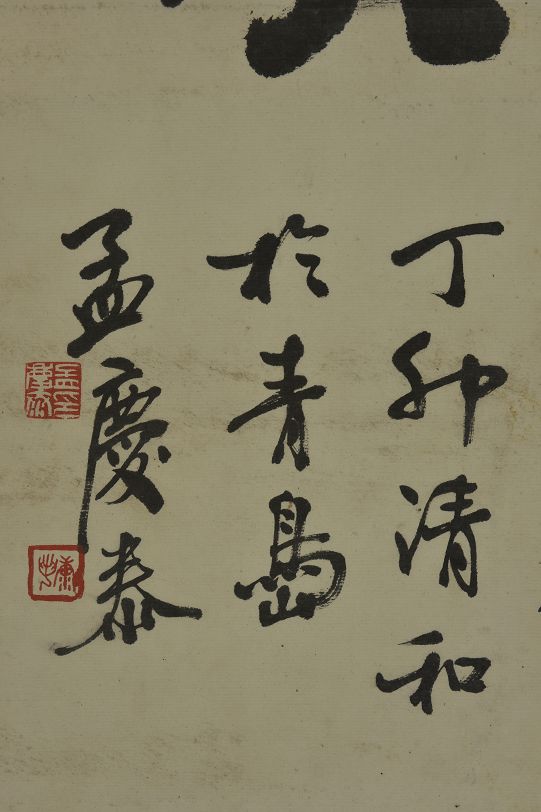 丁卯清和
於青島
孟慶泰